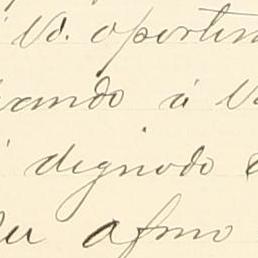 Vd. oportun
ando á V
dignado
afmo